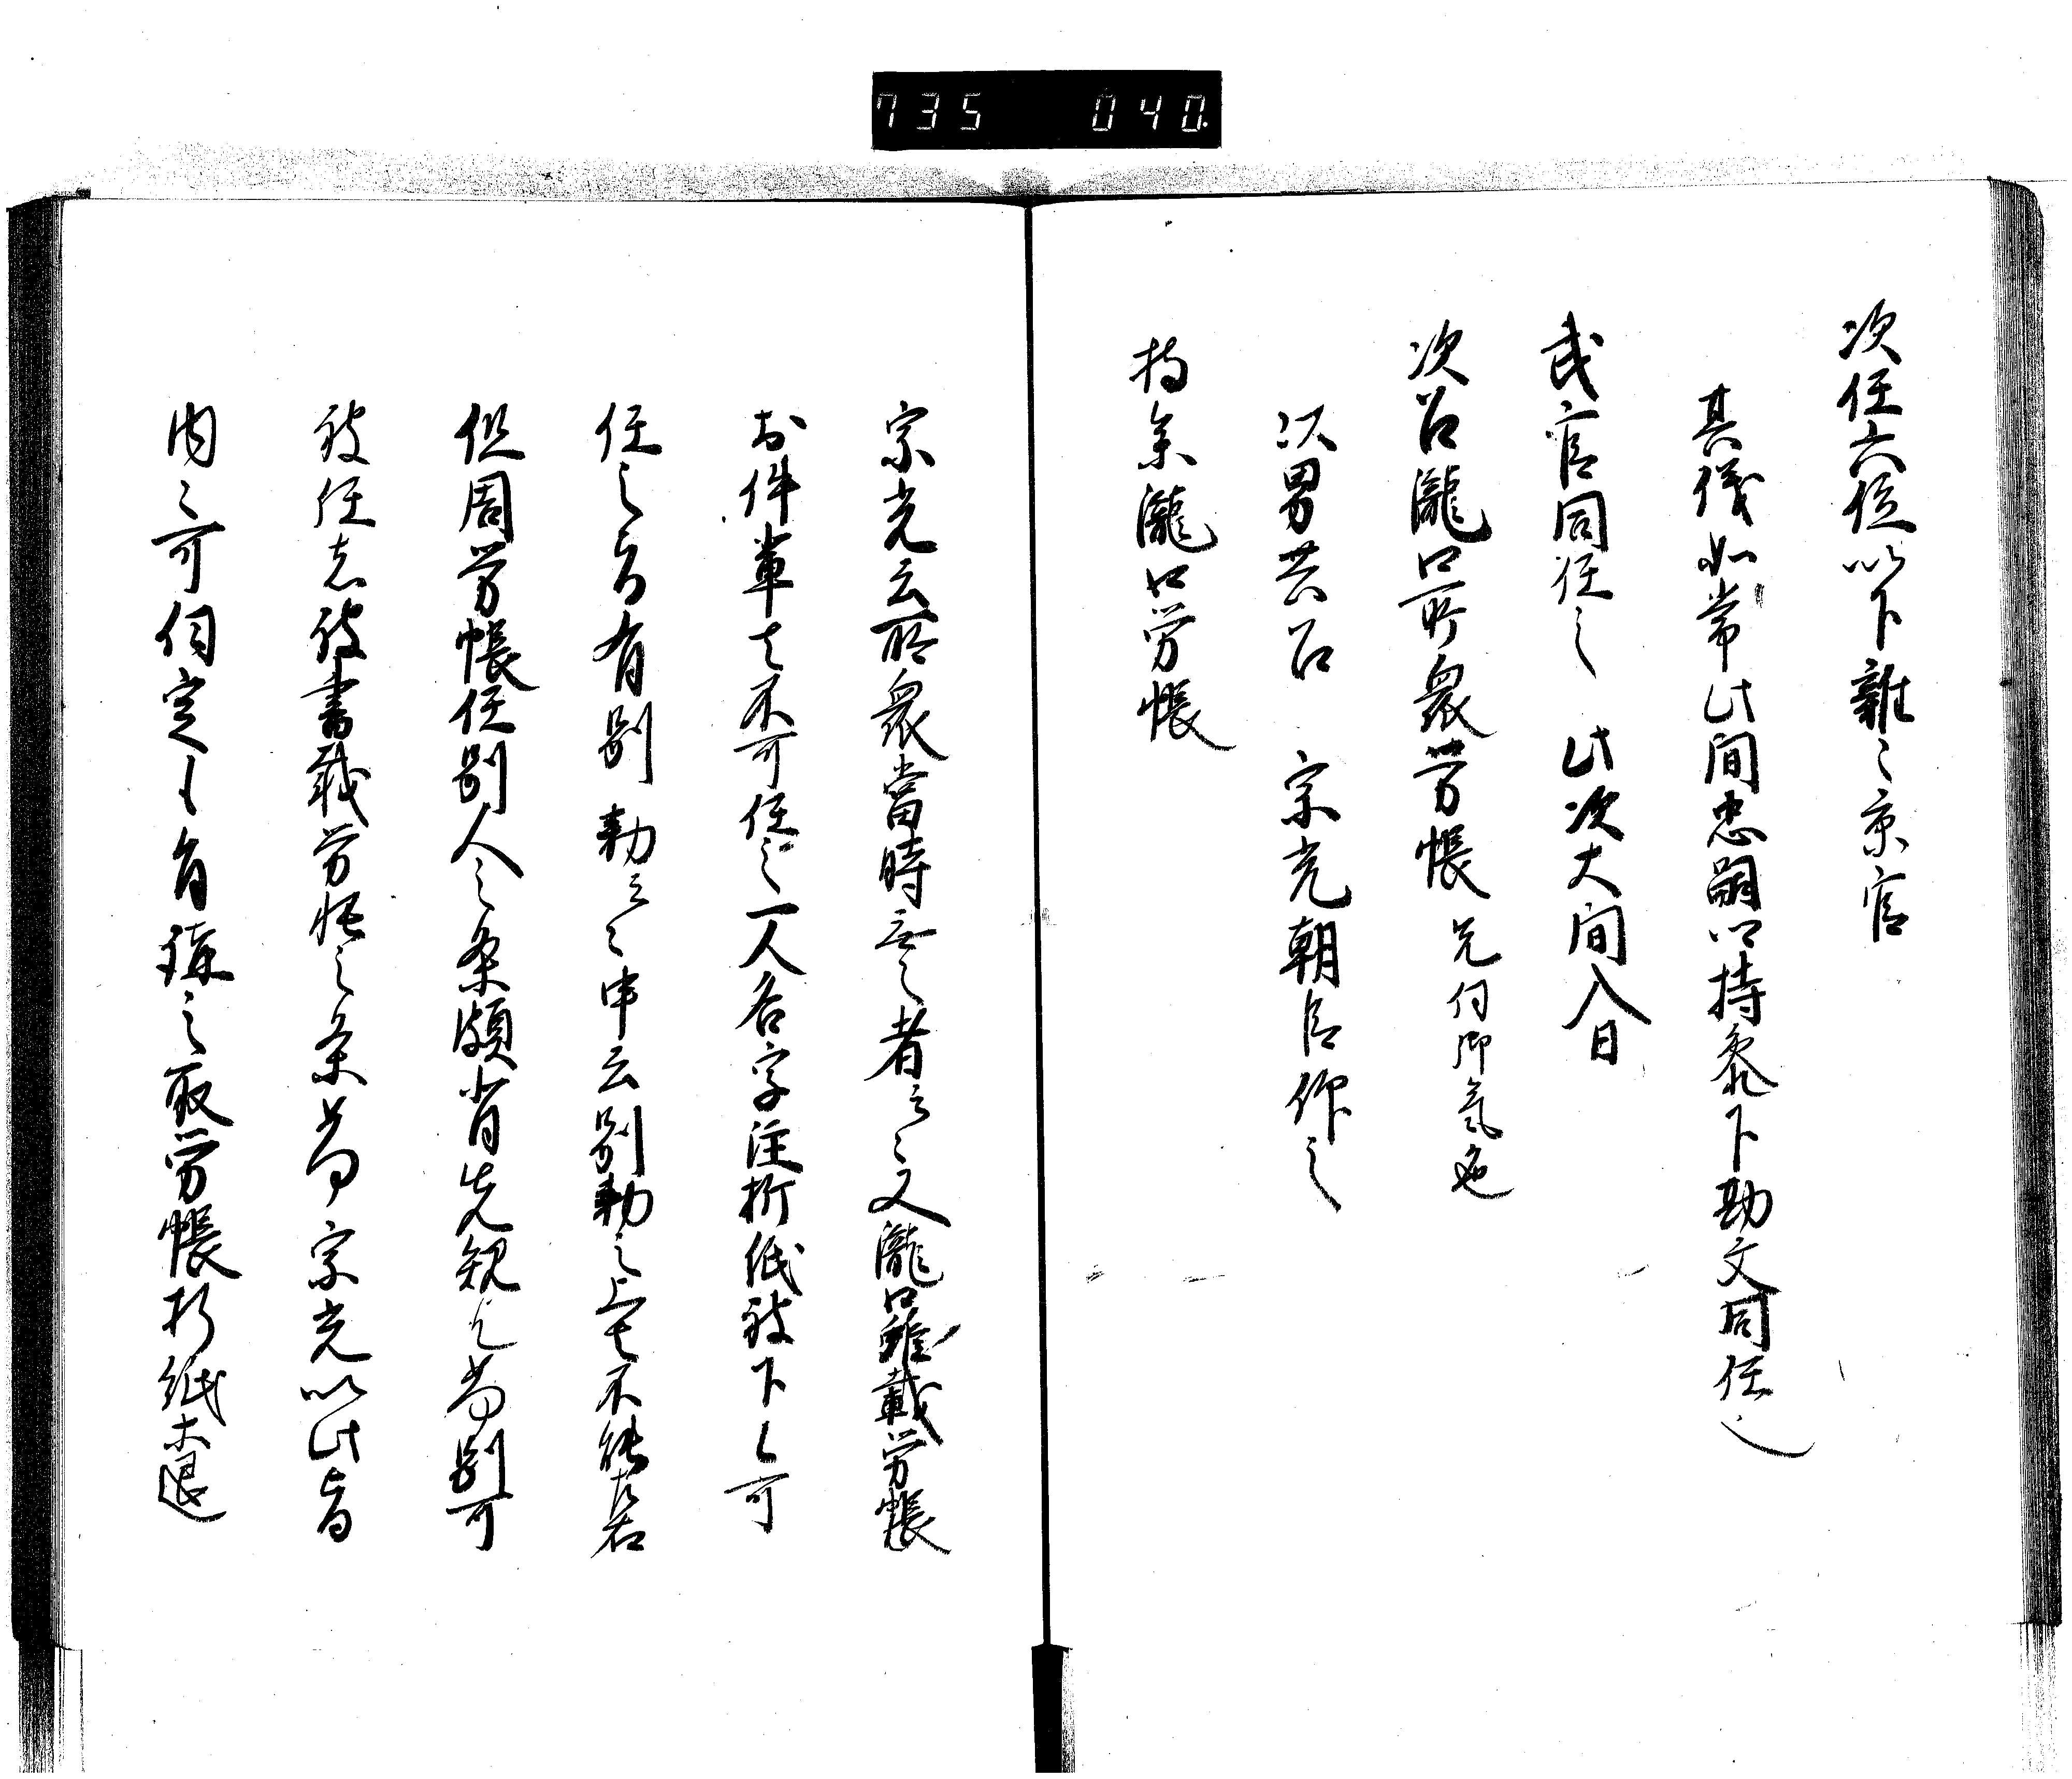 735 040.
次任六位以下雑々京官
其儀如常此間忠嗣以持参下勘文同任之
武官同任之 此次大間入日
次召瀧口所衆労帳 先伺御気色
以男共召 宗光朝臣仰之
持参瀧口労帳
宗光云所衆當時無之者云々又瀧口雖載労帳
於件輩者不可任之一人名字注折紙被下之可
任之旨有別勅云々申云別勅之上者不能左右
但周労帳任別人之条頗背先規之尚別可
被任者被書載労帳之条尚宗光以此旨
内々可伺定之有諫之取労帳折紙木退